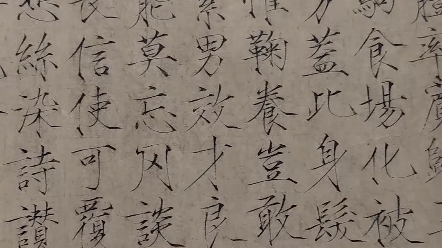 體率賓歸
駒食場化被
方蓋此身髮
惟鞠養豈敢
絜男效才良
能莫忘罔談
長信使可覆
悲絲染詩讚